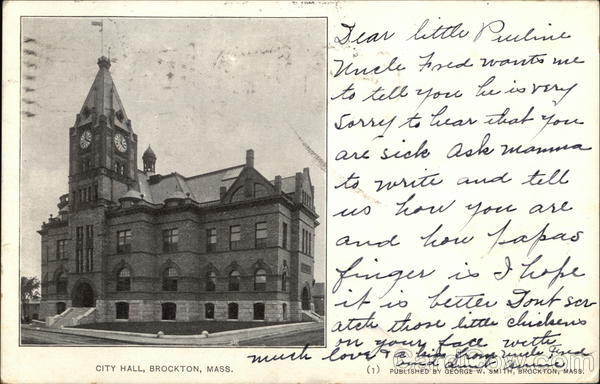 Dear little Pauline
Uncle Fred wants me
to tell you he is very
sorry to hear that you
are sick Ask mamma
to write and tell
us how you are
and how papas
finger is I hope
it is better Dont scr
atch those little chickens
on your face with
much love & a kiss from uncle Fred
and aunt
CITY HALL, BROCKTON, MASS.
(1) PUBLISHED BY GEORGE W. SMITH, BROCKTON, MASS.
CardCow.com